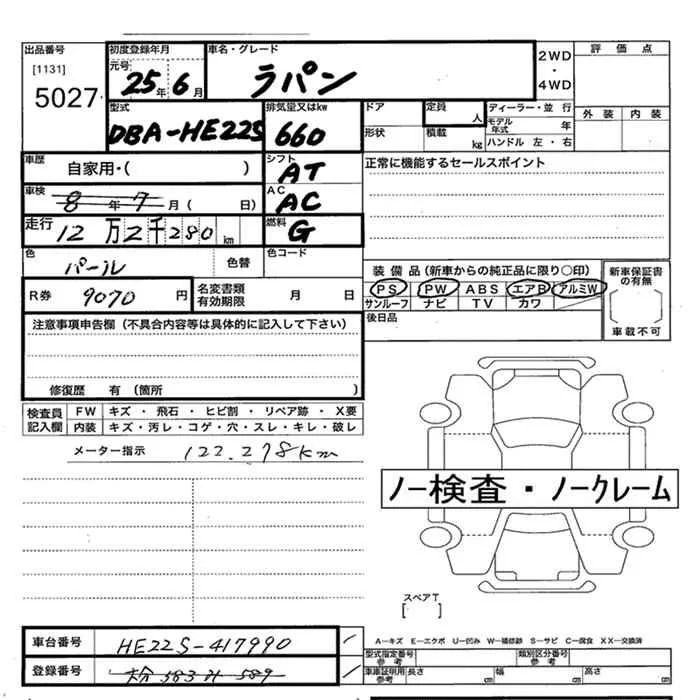 出品番号 初度登録年月 車名・グレード 2WD 評価点
[1131] 元号
5027 25年6月 ラパン ・ 4WD
型式 排気量又はkw ドア 定員 人 ディーラー・並行 外装 内装
DBA-HE22S 660 形状 積載 kg モデル年式 年
ハンドル 左・右
車歴 自家用・( ) シフト AT 正常に機能するセールスポイント
車検 8年7月( 日) AC AC
走行 12万2千280km 燃料 G
色 パール 色替 色コード
装備品(新車からの純正品に限り○印) 新車保証書の有無
R券 9070円 名変書類有効期限 月 日 PS PW ABS エアB アルミW
サンルーフ ナビ TV カワ
車載不可
注意事項申告欄(不具合内容等は具体的に記入して下さい) 後日品
修復歴 有(箇所 )
検査員記入欄 FW キズ・飛石・ヒビ割・リペア跡・X要
内装 キズ・汚レ・コゲ・穴・スレ・キレ・破レ
メーター指示 122.278km
ノー検査・ノークレーム
スペアT
[ ]
車台番号 HE22S-417990
A-キズ E-エクボ U-凹み W-補修跡 S-サビ C-腐食 XX-交換済
型式指定番号 参考 類別区分番号 参考
登録番号 車庫証明用 参考 長さ cm 幅 cm 高さ cm